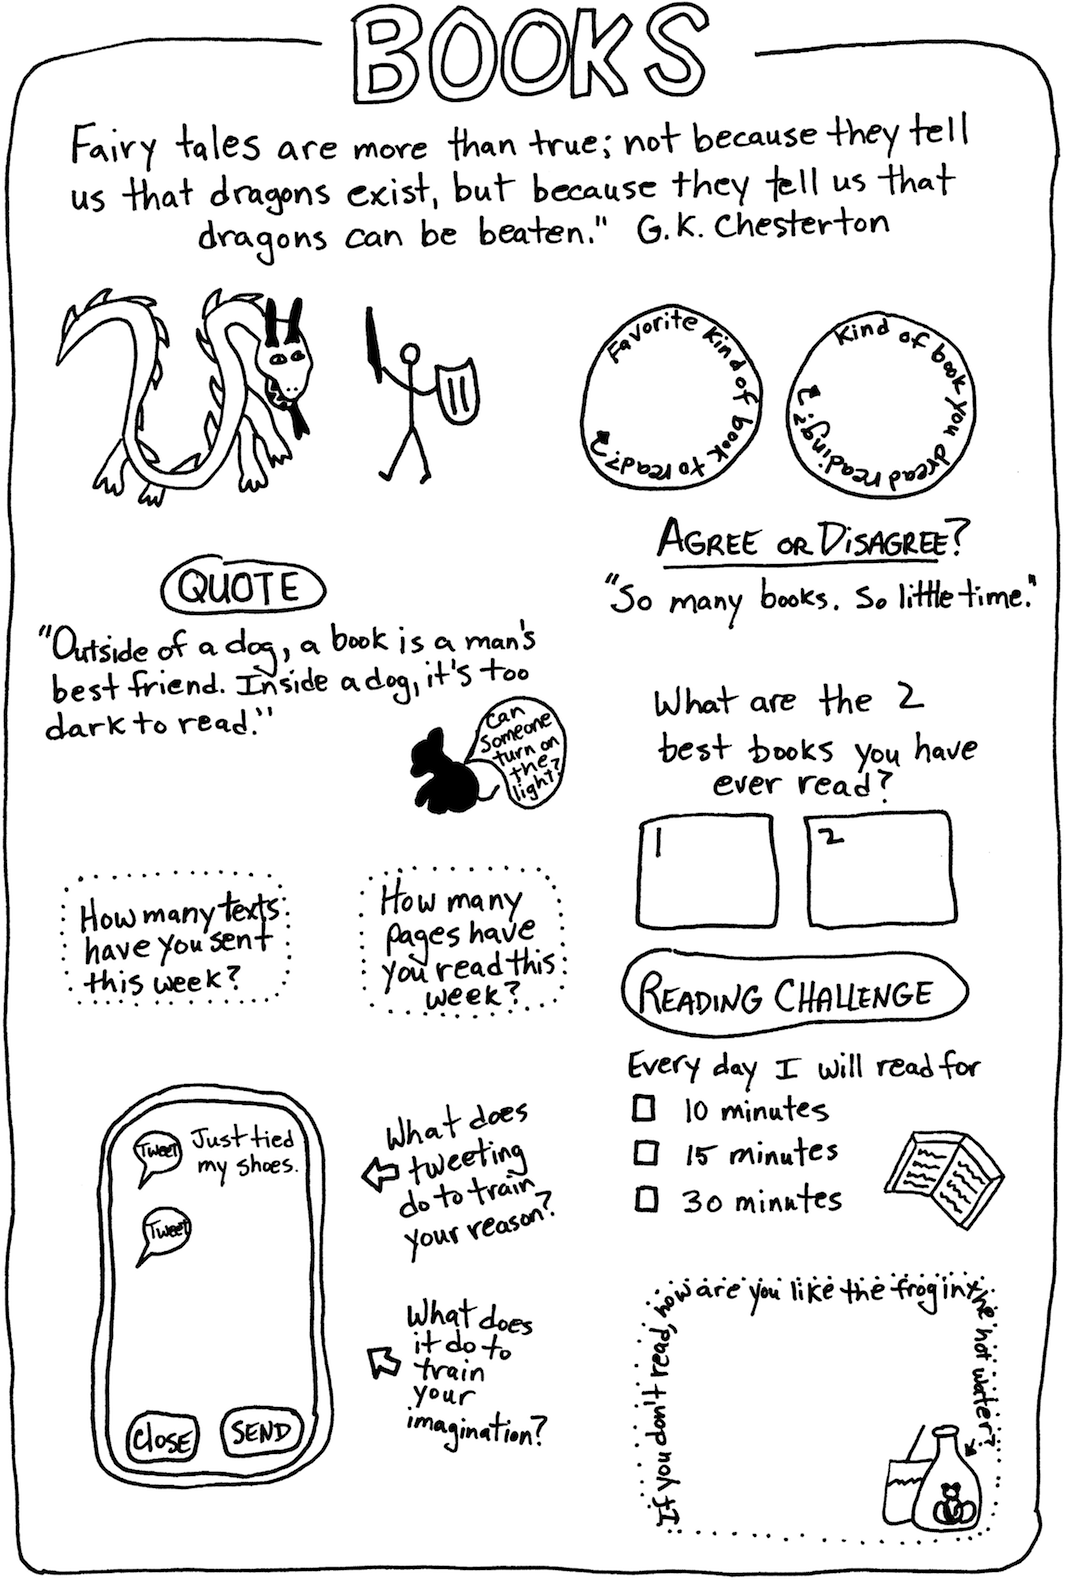 BOOKS
Fairy tales are more than true; not because they tell
us that dragons exist, but because they tell us that
dragons can be beaten." G.K. Chesterton
Favorite kind of book to read?
Kind of book you dread reading?
QUOTE
"Outside of a dog, a book is a man's
best friend. Inside a dog, it's too
dark to read."
Can
someone
turn on
the
light?
AGREE OR DISAGREE?
"So many books. So little time."
What are the 2
best books you have
ever read?
1
2
How many texts
have you sent
this week?
How many
pages have
you read this
week?
READING CHALLENGE
Every day I will read for
10 minutes
15 minutes
30 minutes
Tweet
Just tied
my shoes.
Tweet
CLOSE
SEND
What does
tweeting
do to train
your reason?
What does
it do to
train
your
imagination?
If you don't read, how are you like the frog in the hot water?